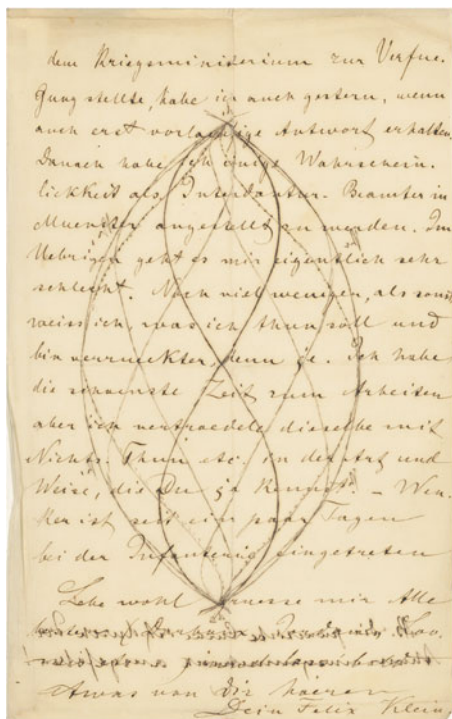 dem Kriegsministerium zur Verfue-
gung stellte, habe ich auch gestern, wenn
auch erst vorlaeufige Antwort erhalten.
Danach habe ich einige Wahrschein-
lickkeit als Intendantur-Beamter in
Muenster angestellt zu werden. Im
Uebrigen geht es mir eigentlich sehr
schlecht. Noch viel weniger, als sonst
weiss ich, was ich thun soll und
bin verrueckter, denn je. Ich habe
die schoenste Zeit zum Arbeiten
aber ich vertroedele dieselbe mit
Nichts-Thun etc. in der Art und
Weise, die Du ja kennst. – Wen-
ker ist seit ein paar Tagen
bei der Infanterie eingetreten
Lebe wohl gruesse mir Alle
etwas von Dir hoeren
Dein Felix Klein